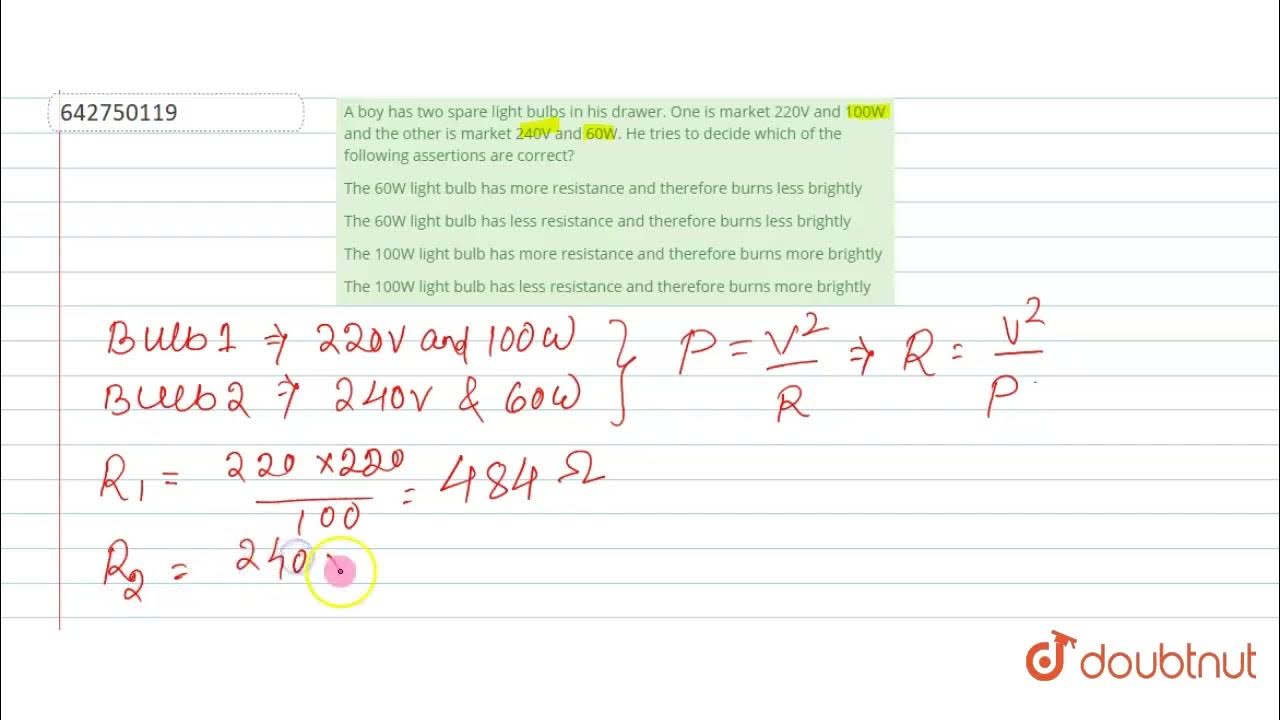 642750119
A boy has two spare light bulbs in his drawer. One is market 220V and 100W
and the other is market 240V and 60W. He tries to decide which of the
following assertions are correct?
The 60W light bulb has more resistance and therefore burns less brightly
The 60W light bulb has less resistance and therefore burns less brightly
The 100W light bulb has more resistance and therefore burns more brightly
The 100W light bulb has less resistance and therefore burns more brightly
Bulb1 ⇒ 220V and 100W
Bulb2 ⇒ 240V & 60W
} P = V²/R ⇒ R = V²/P
R₁ = 220 × 220 / 100 = 484 Ω
R₂ = 240
doubtnut